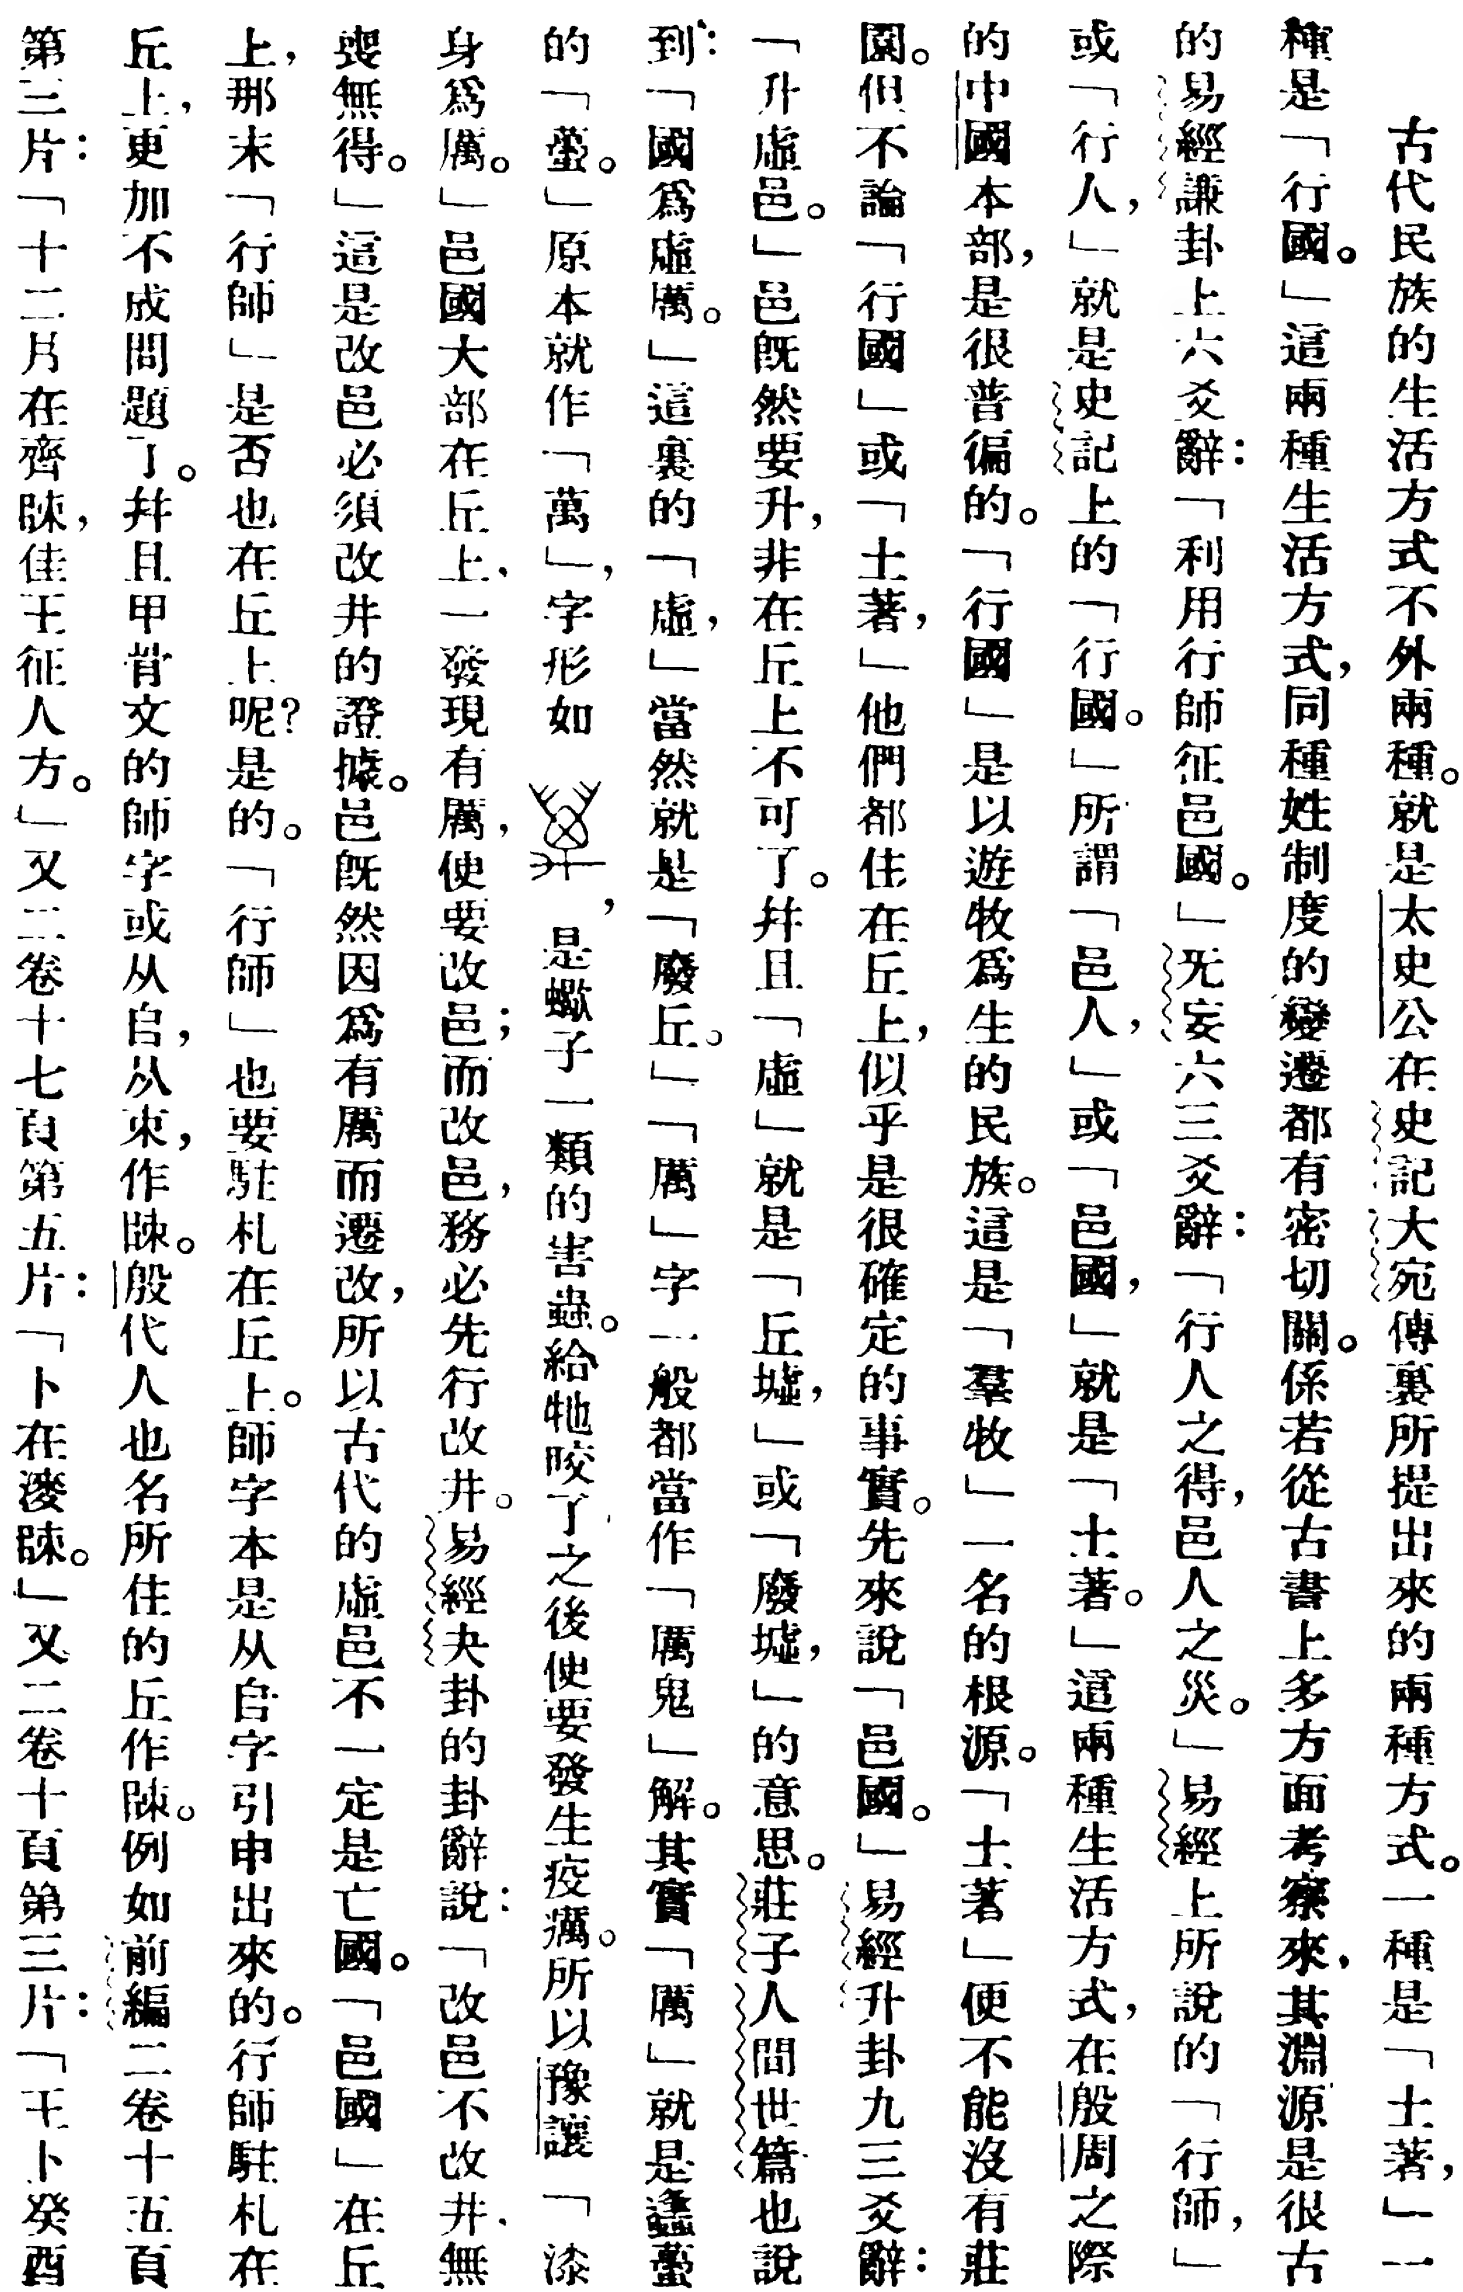 古代民族的生活方式不外兩種。就是太史公在史記大宛傳裏所提出來的兩種方式。一種是「土著,」一
種是「行國。」這兩種生活方式,同種姓制度的變遷都有密切關。係若從古書上多方面考察來,其淵源是很古
的易經謙卦上六爻辭:「利用行師征邑國。」旡妄六三爻辭:「行人之得,邑人之災。」易經上所說的「行師,」
或「行人,」就是史記上的「行國。」所謂「邑人,」或「邑國,」就是「土著。」這兩種生活方式,在殷周之際
的中國本部,是很普徧的。「行國」是以遊牧爲生的民族。這是「羣牧」一名的根源。「土著」便不能沒有莊
園。但不論「行國」或「土著,」他們都住在丘上,似乎是很確定的事實。先來說「邑國。」易經升卦九三爻辭:
「升虛邑。」邑旣然要升,非在丘上不可了。幷且「虛」就是「丘墟,」或「廢墟,」的意思。莊子人間世篇也說
到:「國爲虛厲。」這裏的「虛,」當然就是「廢丘。」「厲」字一般都當作「厲鬼」解。其實「厲」就是蠭蠆
的「蠆。」原本就作「萬」,字形如 ,是蠍子一類的害蟲。給牠咬了之後使要發生疫癘。所以豫讓「漆
身爲厲。」邑國大部在丘上,一發現有厲,使要改邑;而改邑,務必先行改井。易經夬卦的卦辭說:「改邑不改井.無
喪無得。」這是改邑必須改井的證據。邑旣然因爲有厲而遷改,所以古代的虛邑不一定是亡國。「邑國」在丘
上,那末「行師」是否也在丘上呢?是的。「行師」也要駐札在丘上。師字本是从𠂤字引申出來的。行師駐札在
丘上,更加不成問題了。幷且甲骨文的師字或从𠂤,从朿,作𠂤朿。殷代人也名所住的丘作𠂤朿。例如前編二卷十五頁
第三片:「十二月在齊𠂤朿,佳王征人方。」又二卷十七頁第五片:「卜在淩𠂤朿。」又二卷十頁第三片:「王卜癸酉